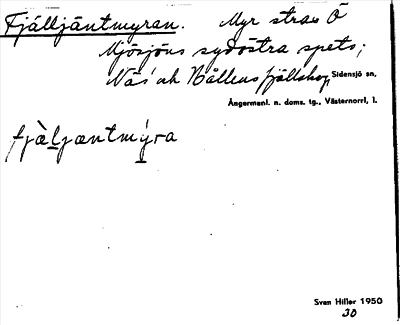 Fjälljäntmyran. Myr strax Ö
Mjösjöns sydöstra spets;
Näs' ok Bållens fjällskog, Sidensjö sn,
Ångermanl. n. doms. tg., Västernorrl. l.
fjæ̀ljæntmýra
Sven Hiller 1950
30